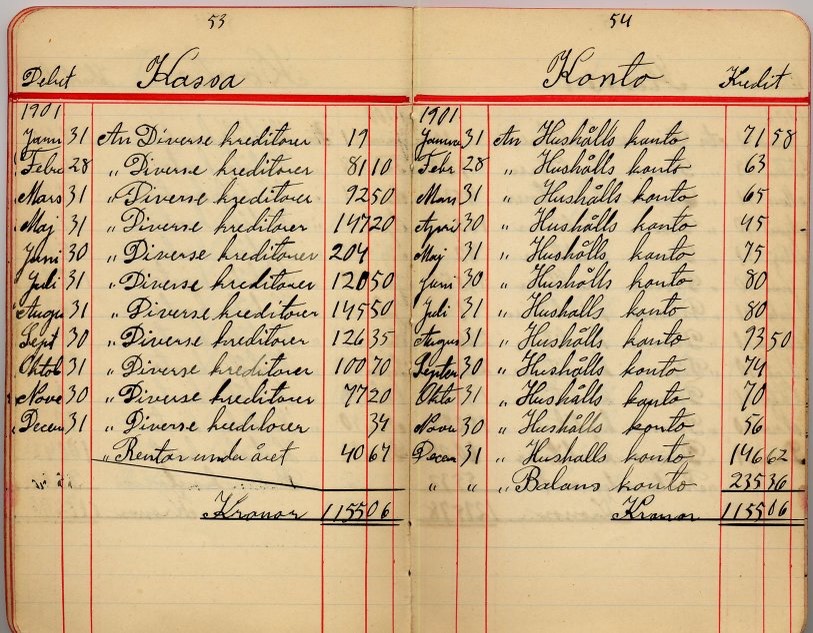 53
Debet Kassa
1901
Janu 31 An Diverse kreditorer 19
Febr 28 „ Diverse kreditorer 81 10
Mars 31 „ Diverse kreditorer 92 50
Maj 31 „ Diverse kreditorer 147 20
Juni 30 „ Diverse kreditorer 204
Juli 31 „ Diverse kreditorer 120 50
Augu 31 „ Diverse kreditorer 145 50
Sept 30 „ Diverse kreditorer 126 35
Oktob 31 „ Diverse kreditorer 100 70
Nove 30 „ Diverse kreditorer 77 20
Decem 31 „ Diverse kreditorer 34
„ Räntor under året 40 67
Kronor 1155 06
54
Konto Kredit
1901
Janua 31 An Hushålls konto 71 58
Febr 28 „ Hushålls konto 63
Mars 31 „ Hushålls konto 65
April 30 „ Hushålls konto 45
Maj 31 „ Hushålls konto 75
Juni 30 „ Hushålls konto 80
Juli 31 „ Hushålls konto 80
Augus 31 „ Hushålls konto 93 50
Septem 30 „ Hushålls konto 74
Okto 31 „ Hushålls konto 70
Nove 30 „ Hushålls konto 56
Decem 31 „ Hushålls konto 146 62
„ „ „ Balans konto 235 36
Kronor 1155 06